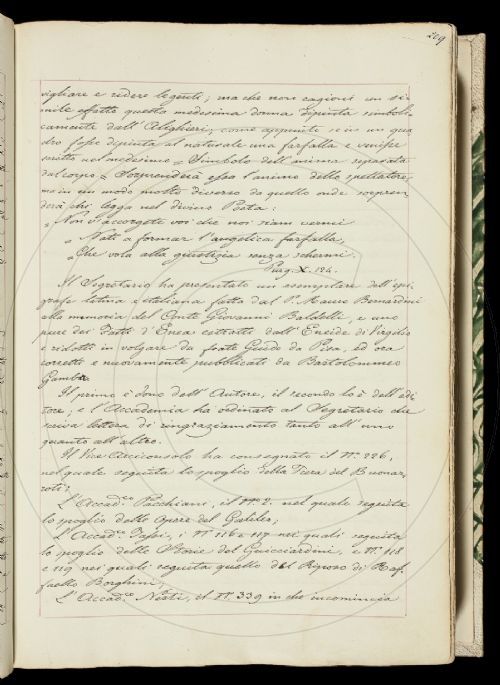 209
vigliare e ridere le genti; ma che non cagioni un si-
mile effetto questa medesima donna dipinta simboli-
camente dall'Alighieri, come appunto se in un qua
dro fosse dipinta al naturale una farfalla e venisse
scritto nel medesimo = Simbolo dell'anima separata
dal corpo = Sorprenderà essa l'animo dello spettatore,
ma in un modo molto diverso da quello onde sorpren-
derà chi legga nel divino Poeta:
"Non v'accorgete voi che noi siam vermi
"Nati a formar l'angelica farfalla,
"Che vola alla giustizia senza schermi.
Purg. X. 124.
Il Segretario ha presentato un esemplare dell'epi
grafe latina e italiana fatta dal P. Mauro Bernardini
alla memoria del Conte Giovanni Baldelli, e uno
pure dei Fatti d'Enea estratti dall'Eneide di Virgilio
e ridotti in volgare da frate Guido da Pisa, ed ora
corretti e nuovamente pubblicati da Bartolommeo
Gamba.
Il primo è dono dell'Autore, il secondo lo è dell'edi
tore; e l'Accademia ha ordinato al Segretario che
scriva lettere di ringraziamento tanto all'uno
quanto all'altro.
Il Vice Arciconsolo ha consegnato il N.° 226,
nel quale seguita lo spoglio della Fiera del Buonar-
roti;
L'Accad.co Pacchiani, il N.° 2 nel quale seguita
lo spoglio delle Opere del Galileo;
L'Accad.co i N.i 116 e 117 nei quali seguita
lo spoglio delle Storie del Guicciardini, e N.i 118
e 119 nei quali seguita quello del Riposo di Raf-
faello Borghini;
L'Accad.co Nesti, il N.° 339 in che incomincia